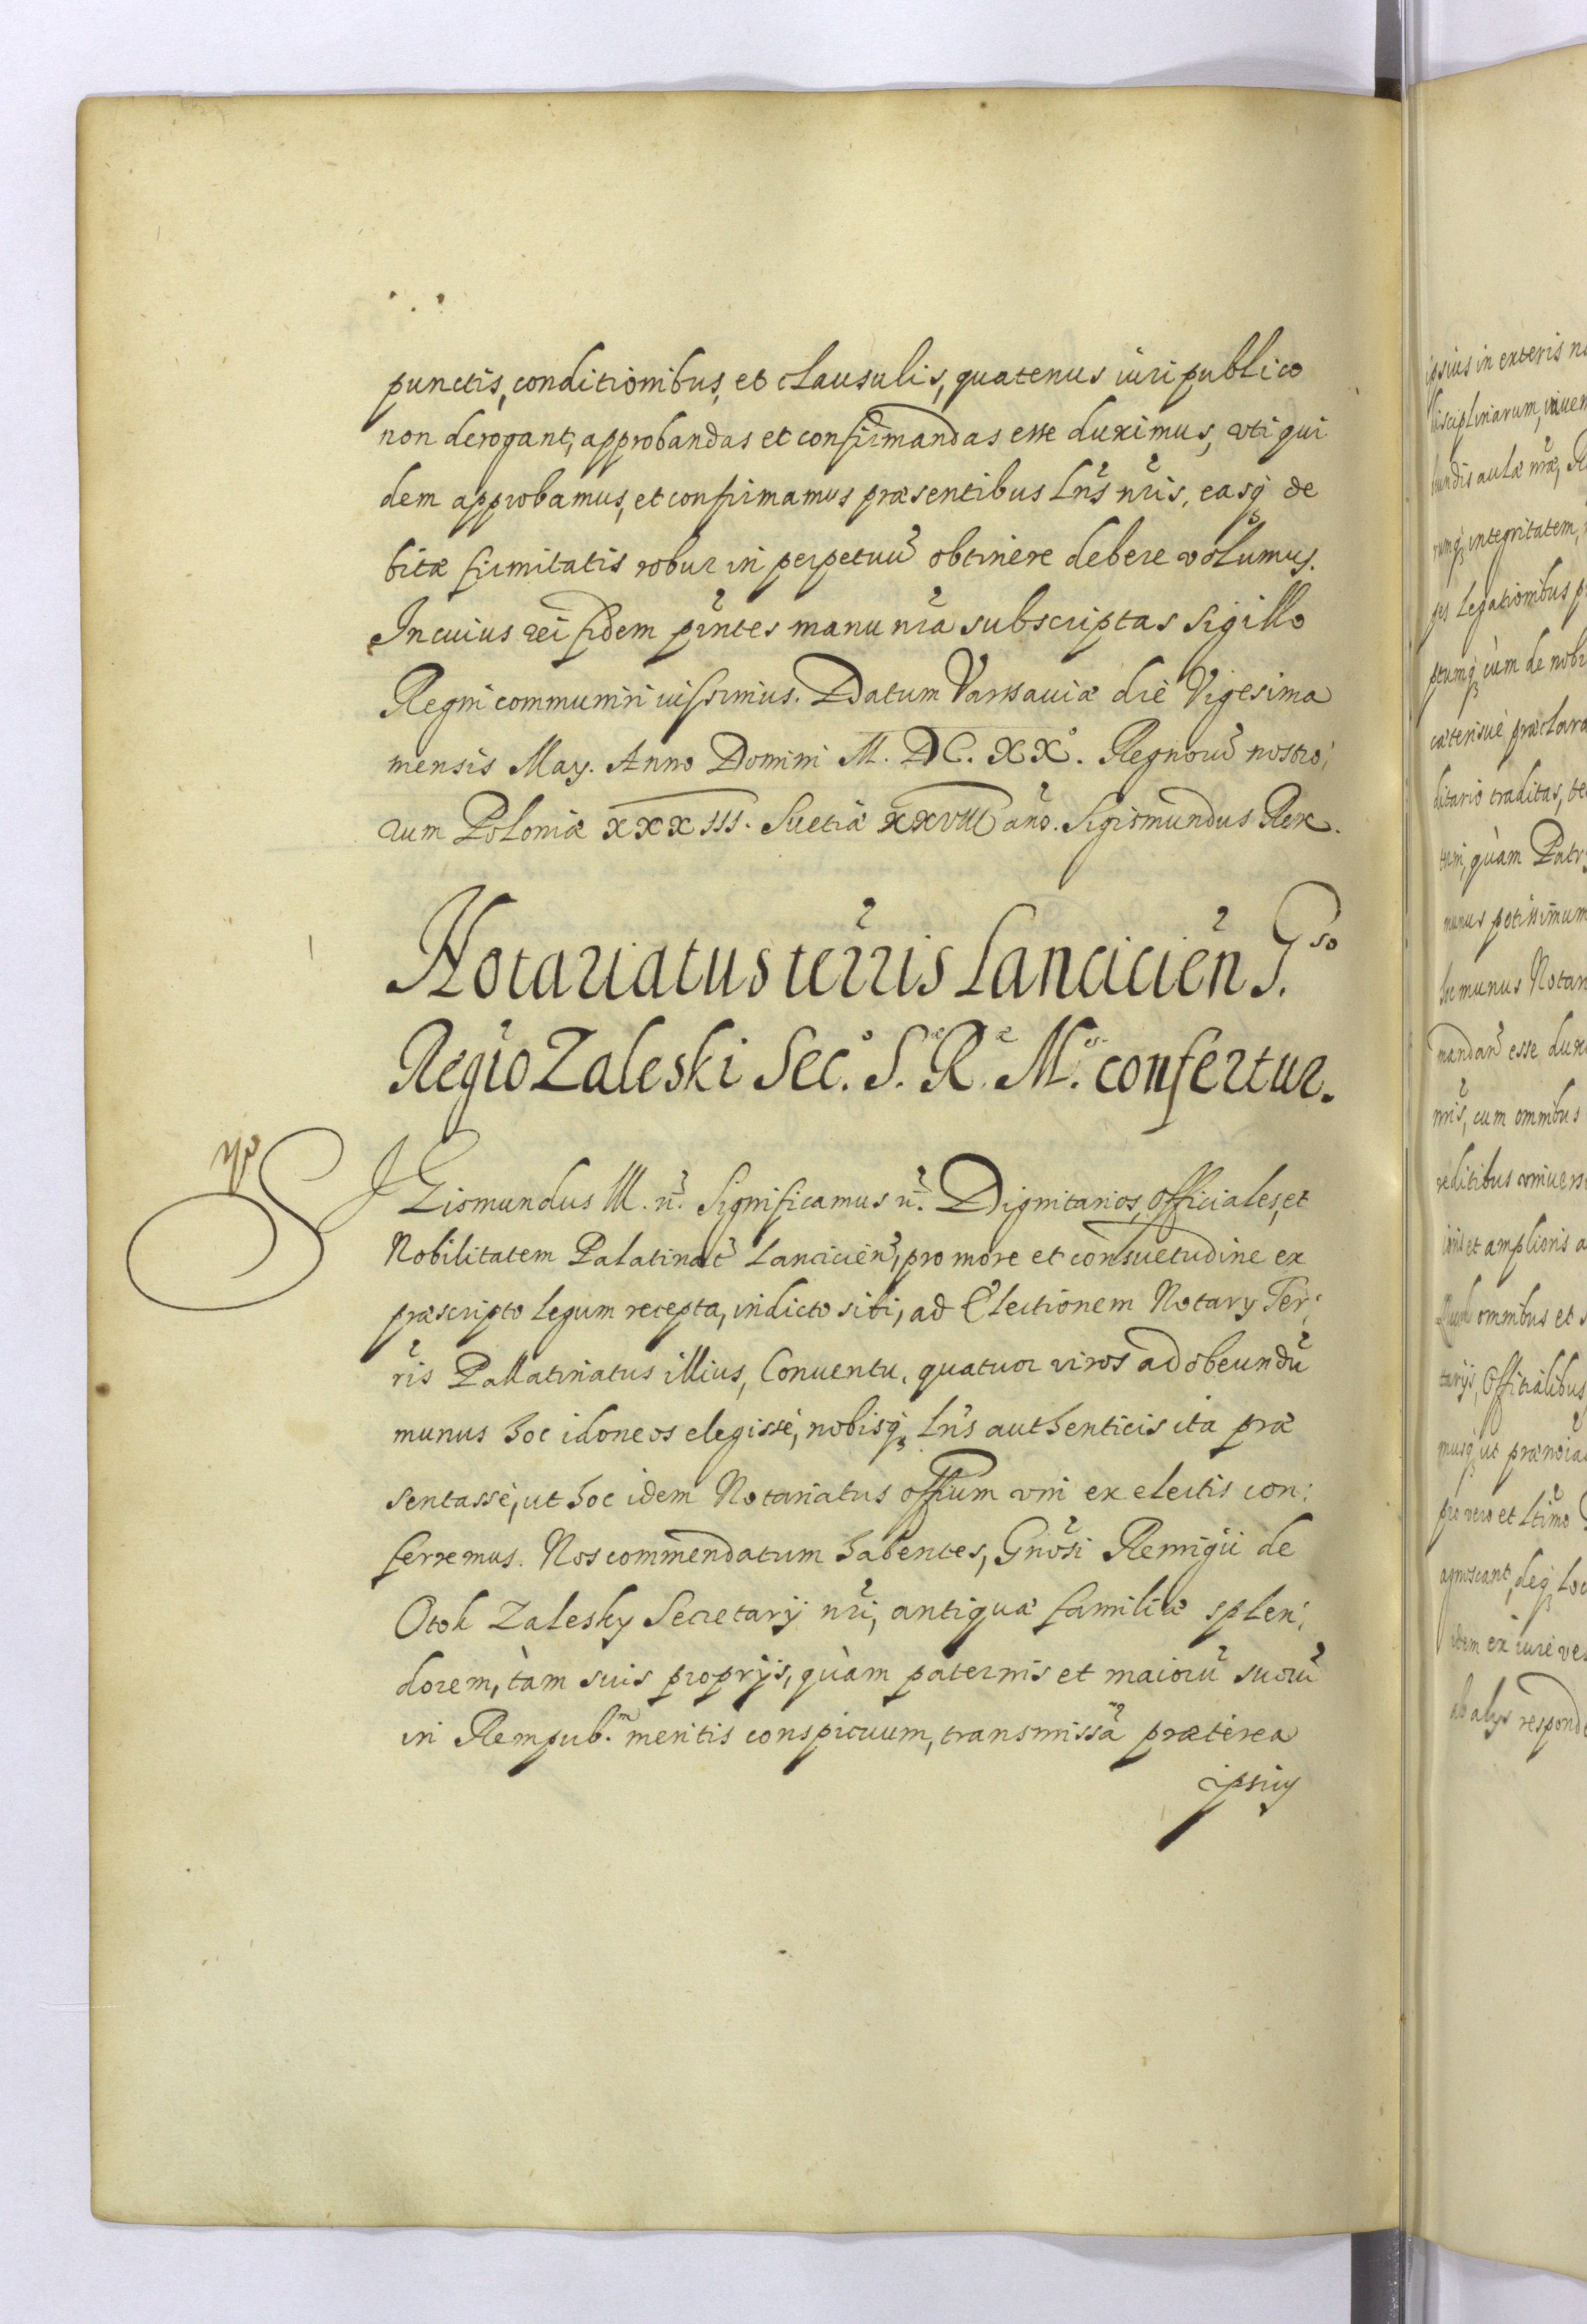 punctis, conditionibus, et clausulis, quatenus iuri publico
non derogant, approbandas et confirmandas esse duximus, vti qui
dem approbamus, et confirmamus præsentibus Lr̃is nr̃is, easq; de
bitæ firmitatis robur in perpetuũ obtinere debere volumus.
In cuius rei fidem pr̃ntes manu nr̃a subscriptas Sigillo
Regni communiri iussimus. Datum Varsauiæ die Vigesima
mensis May. Anno Domini M. DC. XX°. Regnorũ nostro:
rum Poloniæ XXXIII. Suetiæ XXVIII añο. Sigismundus Rex.
Notariatus terr̃is Lancicień G.so
Regio Zaleski Sec.° S. R. M. confertur.
SIGismundus III. ñ. Significamus ñ. Dignitarios, Officiales, et
Nobilitatem Palatinat̃ Lanciciẽn, pro more et consuetudine ex
præscripto legum recepta, indicto sibi, ad Electionem Notary Ter:
r̃is Pallatinatus illius, Conuentu, quatuor viros ad obeundũ
munus hoc idoneos elegisse, nobisq; Lr̃is authenticis ita præ
sentasse, ut hoc idem Notariatus offium vni ex electis con:
ferremus. Nos commendatum habentes, Gnõsi Remigii de
Otok Zalesky Secretarij nr̃i, antiquæ familiæ splen:
dorem, tàm suis proprijs, quàm paternis et maiorũ suorũ
in Rempub.m meritis conspicuum, transmissã præterea
ipsius
ipsius in exteris
disciplinarum,
aulæ nr̃æ,
integritatem,
Legationibus
cùm de nobis
cæterisue, præclara
ditario traditas,
quàm
potissimum
munus Notar
esse dux
cum omnibus
reditibus vniuers
et amplioris
omnibus et
Officialibus
ut
pro vero et Ltimo
agnoscant, deq;
idem ex iure
ab alys respond